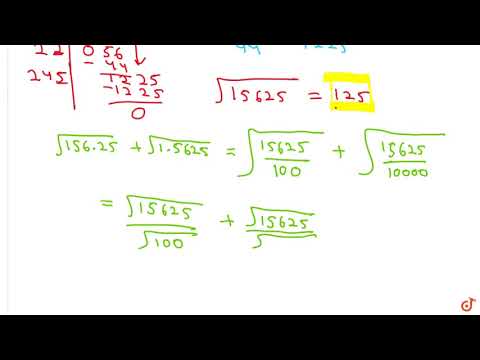 22 | 0 56 44 1225
- 44
245 | 12 25
- 12 25
0
√15625 = 125
√156.25 + √1.5625 = √(15625/100) + √(15625/10000)
= √15625/√100 + √15625/√